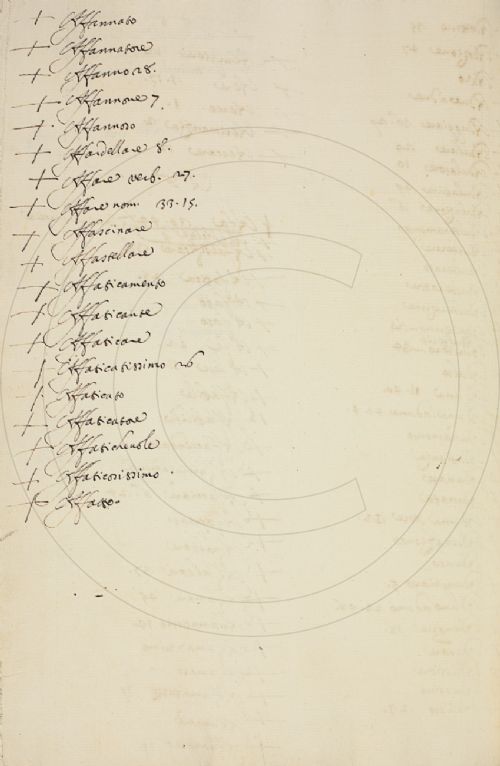 + Affannato
+ Affannatore
+ Affanno 28.
+ Affannone 7.
+ Affannoso
+ Affardellare 8.
+ Affare verb. 27.
+ Affare nom. 33.15.
+ Affascinare
+ Affastellare
+ Affaticamento
+ Affaticante
+ Affaticare
+ Affaticatissimo 26
+ Affaticato
+ Affaticatore
+ Affatichevole
+ Affaticosissimo.
+ Affatto.